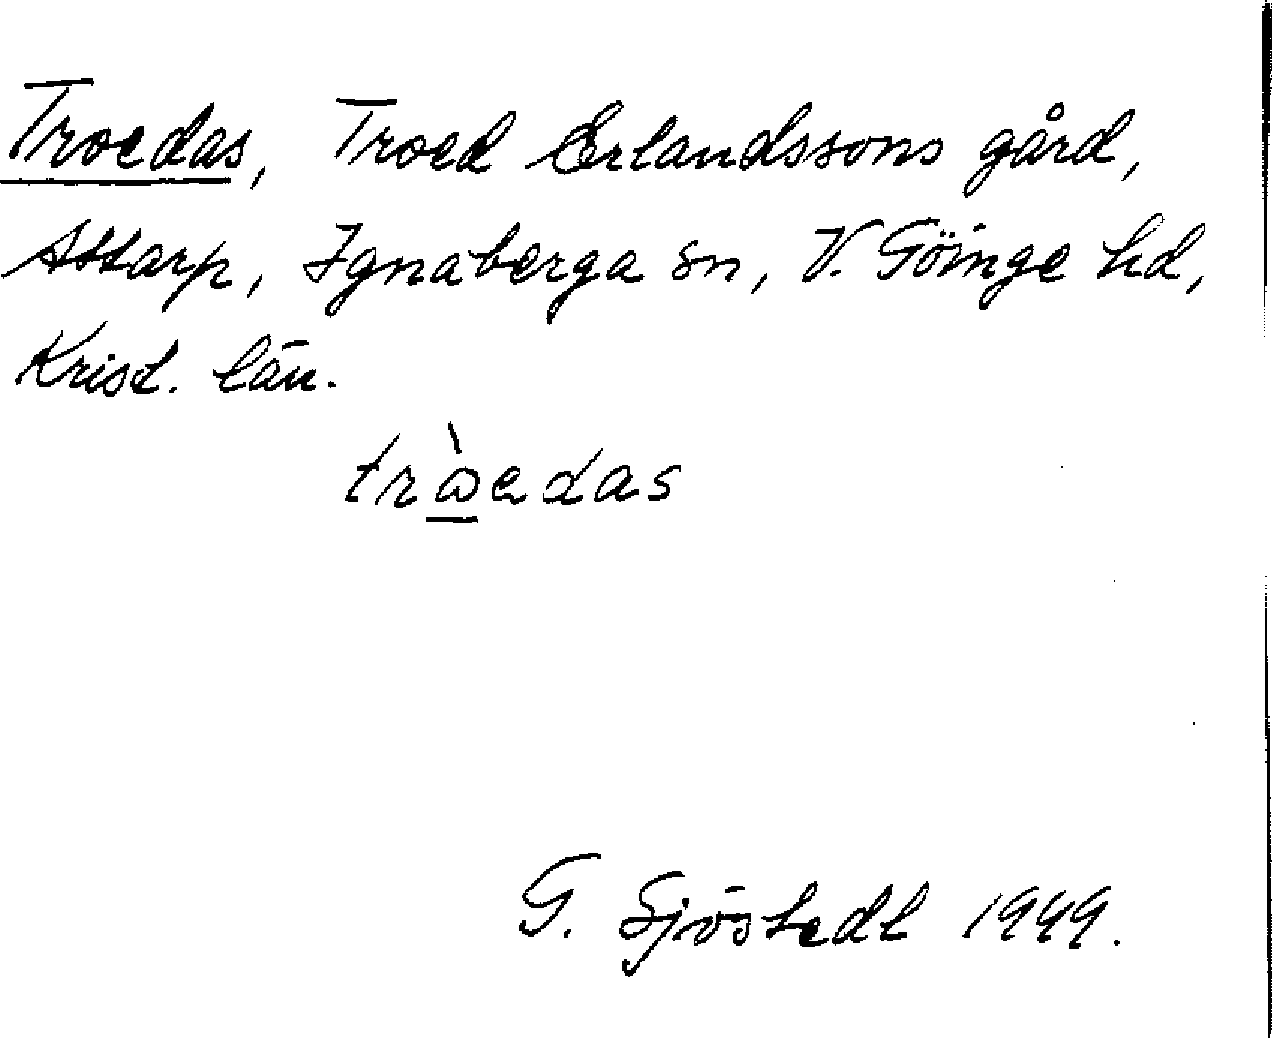 Troedas, Troed Erlandssons gård,
Attarp, Ignaberga sn, V. Göinge hd,
Krist. län.
G. Sjöstedt 1949.